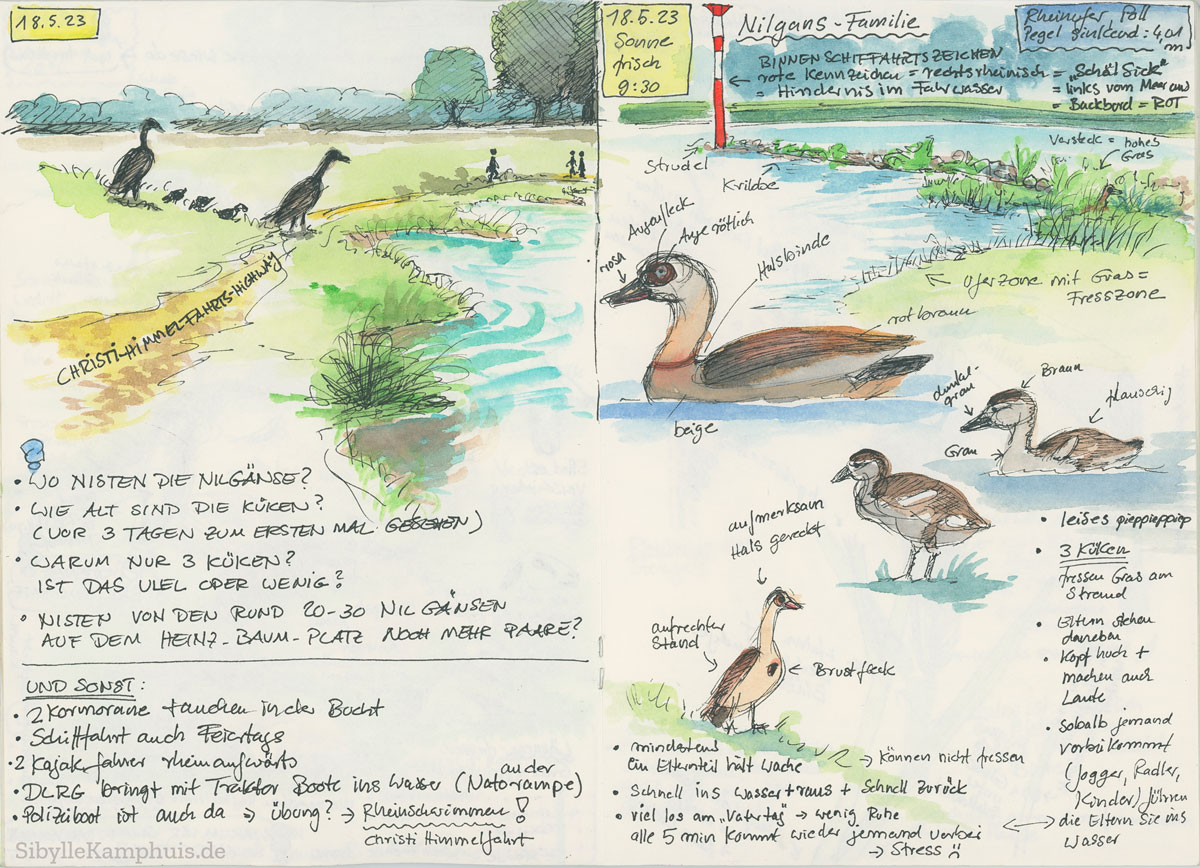 18.5.23
CHRISTI-HIMMEL-FAHRTS-HIGHWAY
?
• WO NISTEN DIE NILGÄNSE?
• WIE ALT SIND DIE KÜKEN?
(VOR 3 TAGEN ZUM ERSTEN MAL GESEHEN)
• WARUM NUR 3 KÜKEN?
IST DAS VIEL ODER WENIG?
• NISTEN VON DEN RUND 20-30 NILGÄNSEN
AUF DEM HEINZ-BAUM-PLATZ NOCH MEHR PAARE?
UND SONST:
• 2 Kormorane tauchen in der Bucht
• Schifffahrt auch Feiertags
• 2 Kajakfahrer rheinaufwärts
• DLRG bringt mit Traktor Boote ins Wasser (an der Natorampe)
• Polizeiboot ist auch da → Übung? → Rheinschwimmen!
Christi Himmelfahrt
SibylleKamphuis.de
18.5.23
Sonne
frisch
9:30
Nilgans-Familie
Rheinufer Poll
Pegel sinkend: 4,01
m
BINNENSCHIFFAHRTSZEICHEN
rote Kennzeichen = rechtsrheinisch = „Schäl Sick"
= Hindernis im Fahrwasser
= links vom Meer aus
= Backbord = ROT
Strudel
Kribbe
Versteck = hohes
Gras
Augenfleck
Auge rötlich
rosa
Halsbinde
Uferzone mit Gras =
Fresszone
rotbraun
beige
dunkel-
grau
Braun
flauschig
Grau
aufmerksam
Hals gereckt
aufrechter
Stand
Brustfleck
• leises pieppieppiep
• 3 Küken
fressen Gras am
Strand
• Eltern stehen
daneben
• Kopf hoch +
machen auch
Laute
• sobalb jemand
vorbeikommt
(Jogger, Radler,
Kinder) führen
die Eltern sie ins
Wasser
• mindestens
ein Elternteil hält Wache → können nicht fressen
• Schnell ins Wasser + raus + Schnell zurück
• viel los am „Vatertag" → wenig Ruhe
alle 5 min kommt wieder jemand vorbei
→ Stress